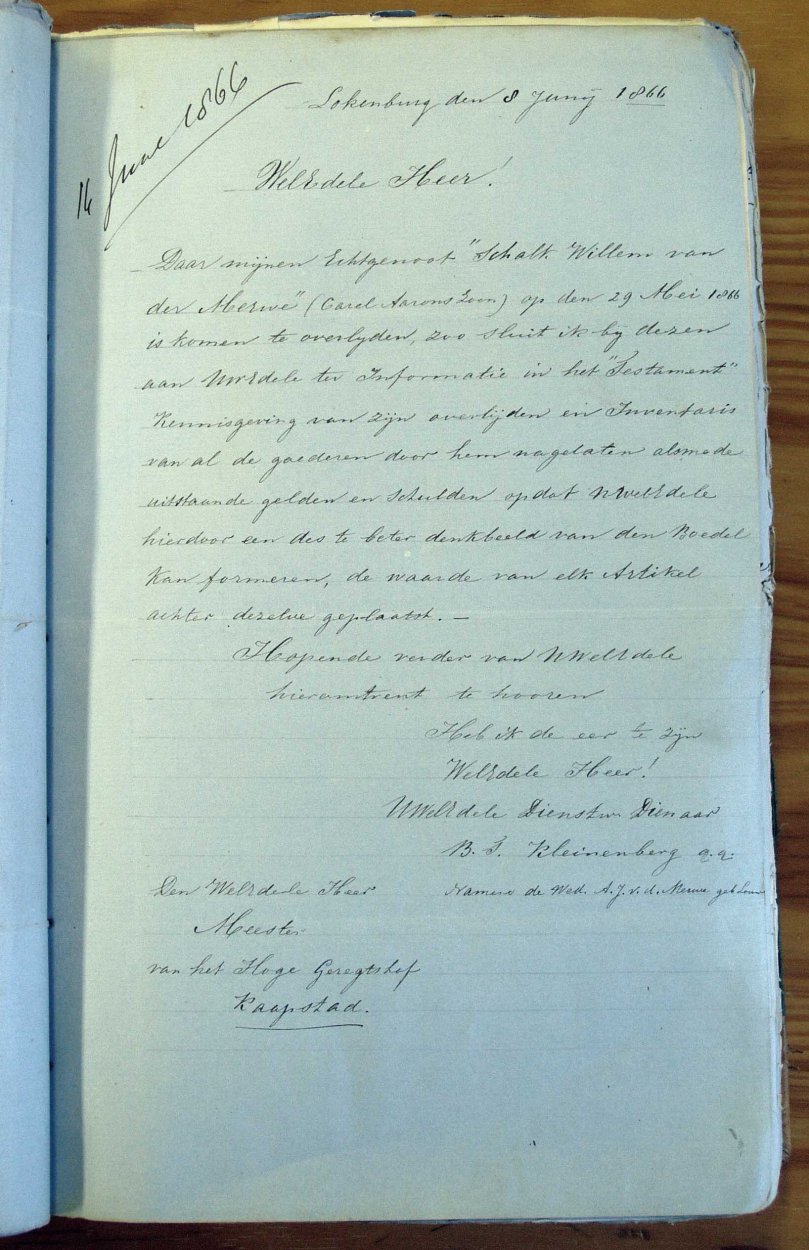 16 June 1866
Lokenburg den 8 Junij 1866
WelEdele Heer!
Daar mijnen Echtgenoot "Schalk Willem van
der Merwe" (Carel Aarons Zoon) op den 29 Mei 1866
is komen te overlyden, zoo sluit ik by dezen
aan UwEdele ter Informatie in het "Testament"
Kennisgeving van zijn overlijden en Inventaris
van al de goederen door hem nagelaten alsmede
uitstaande gelden en Schulden opdat UWelEdele
hierdoor een des te beter denkbeeld van den Boedel
kan formeren, de waarde van elk Artikel
achter dezelve geplaatst. —
Hopende verder van UWelEdele
hieromtrent te hooren
Heb ik de eer te zijn
WelEdele Heer!
UWelEdele Dienstw. Dienaar
B. J. Kleinenberg q.q.
Namens de Wed. A. J. v. d. Merwe geb Louw
Den WelEdele Heer
Meester
van het Hoge Geregtshof
Kaapstad.